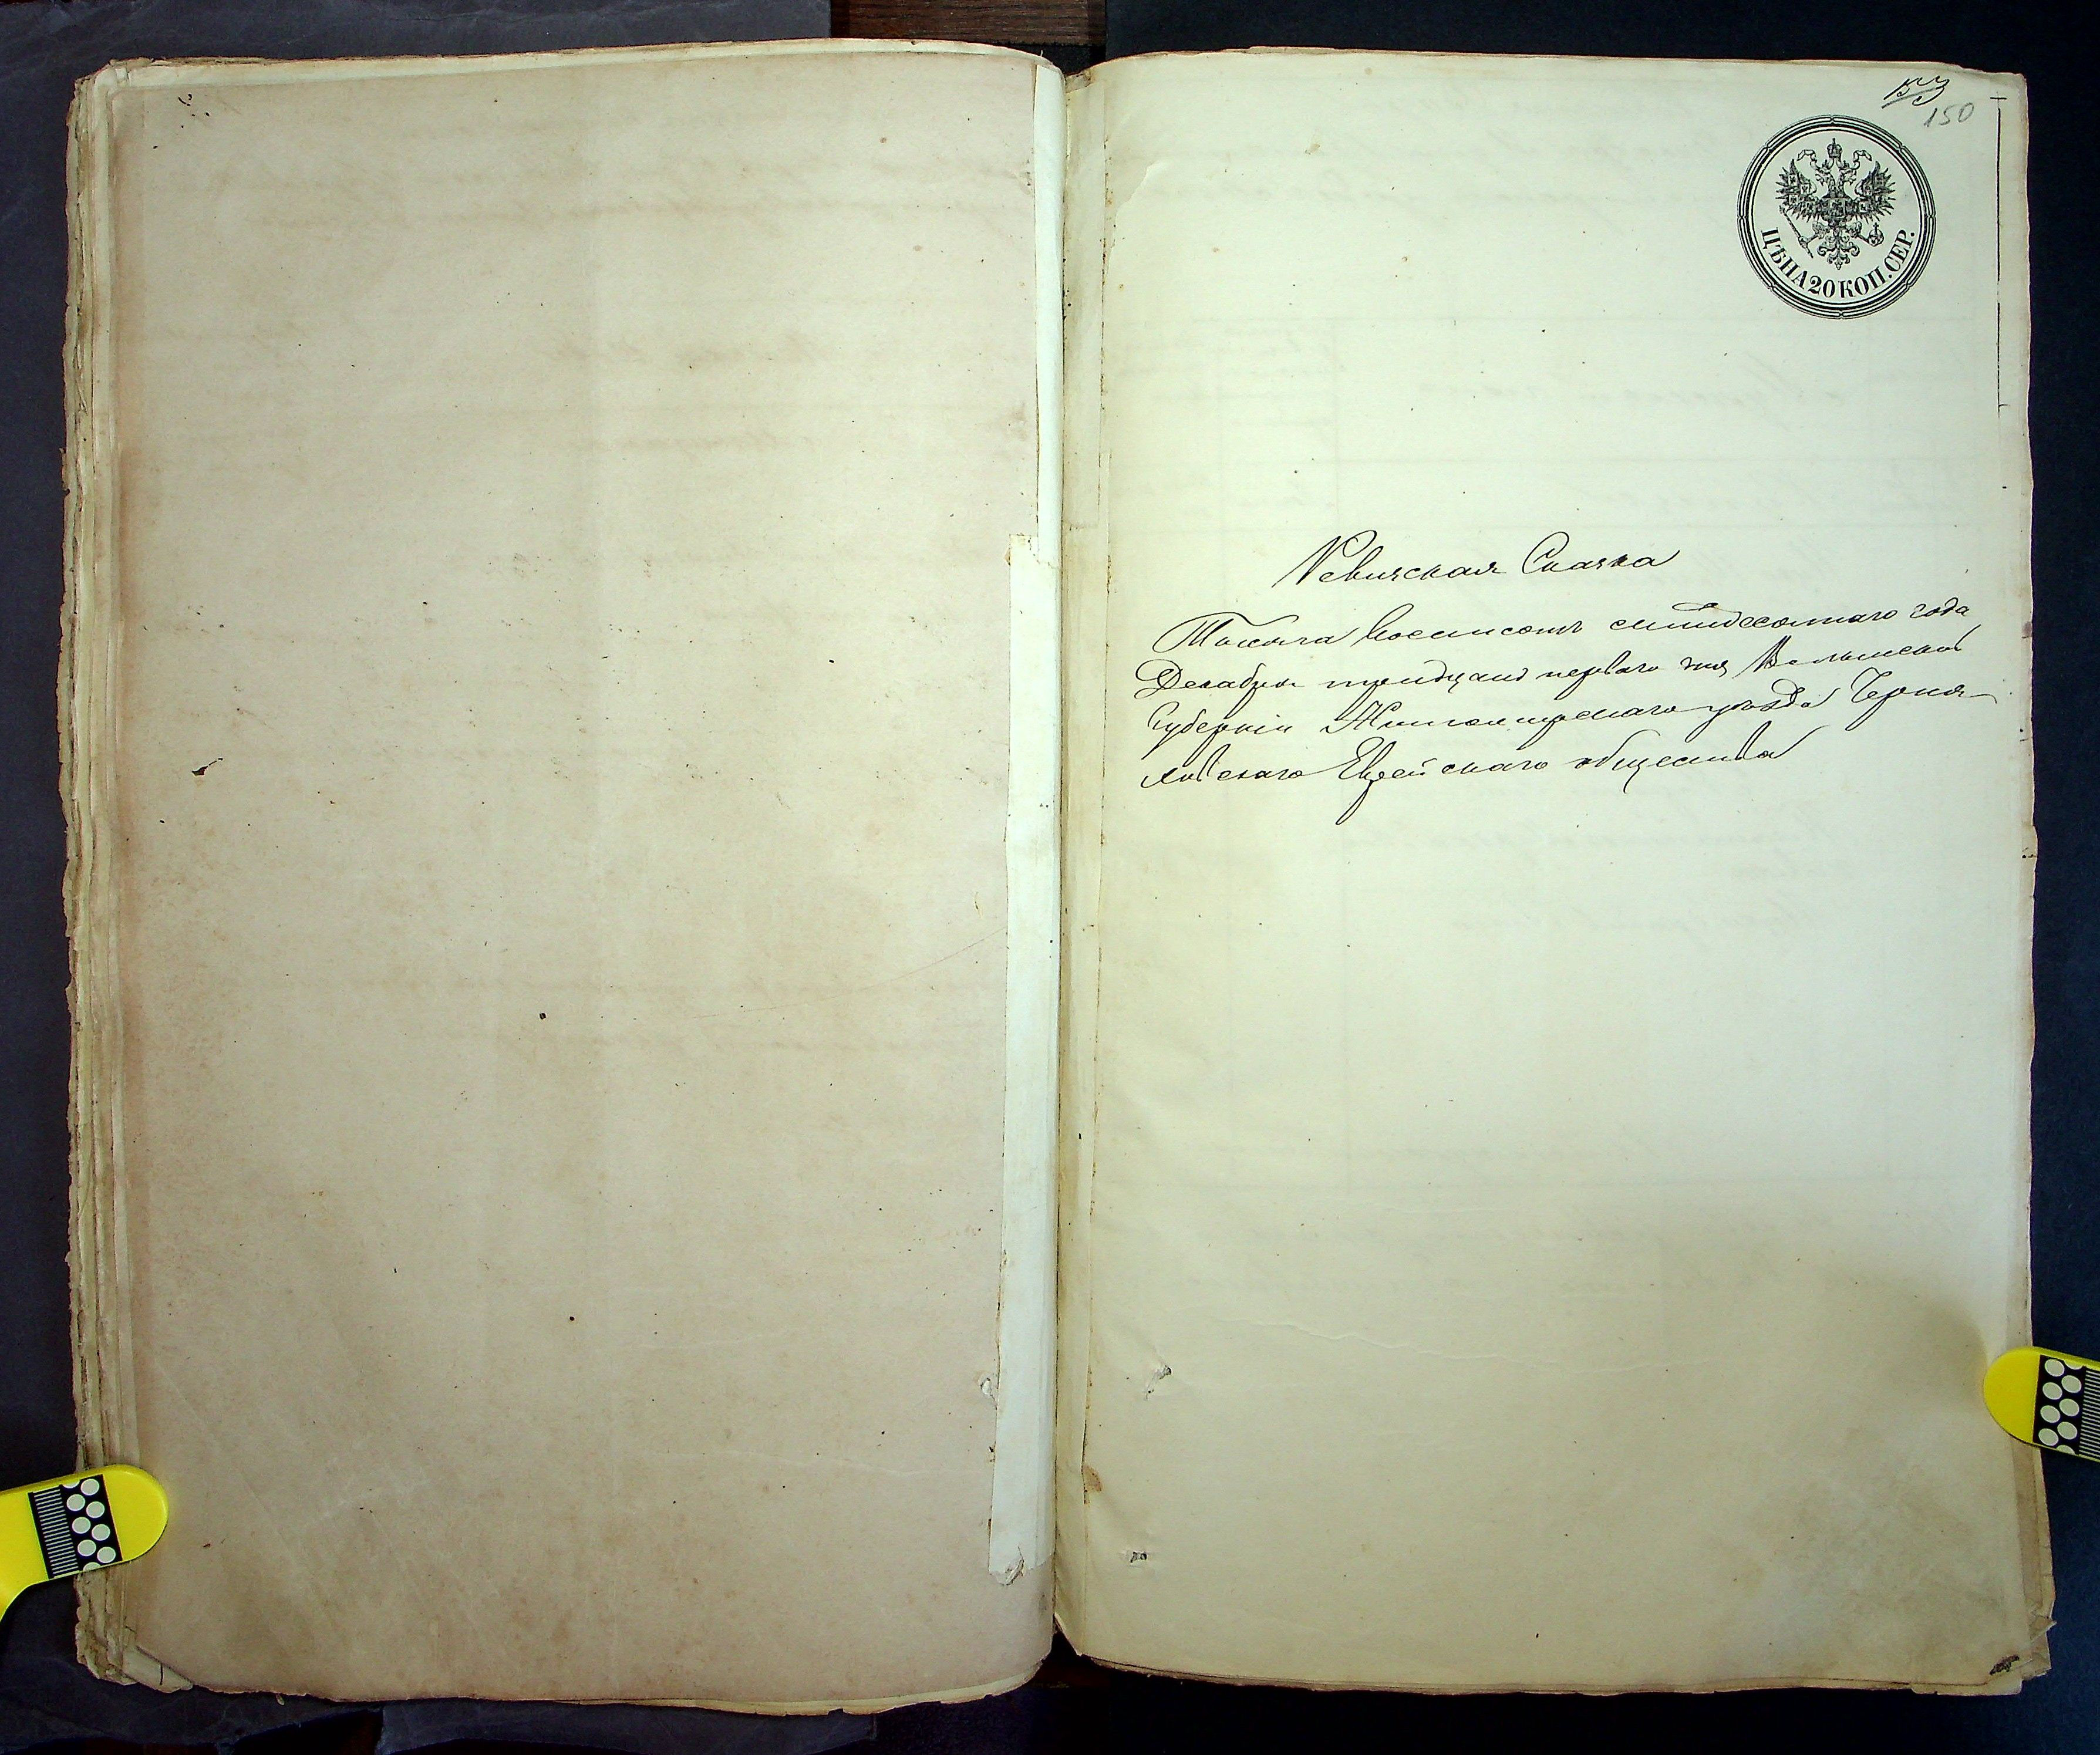 153
150
ЦѢНА 20 КОП. СЕР.
Ревизская Сказка
Тысяча восемсотъ семидесятаго года
Декабря тридцать перваго дня Волынской
Губерніи Житомирскаго уѣзда Черня-
ховскаго Еврейскаго общества